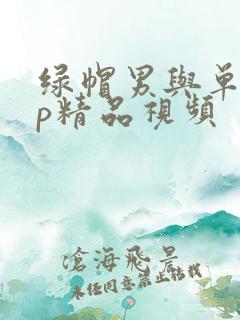 绿帽男與单
p精品视频
滄海飛景
未任同意禁止转载